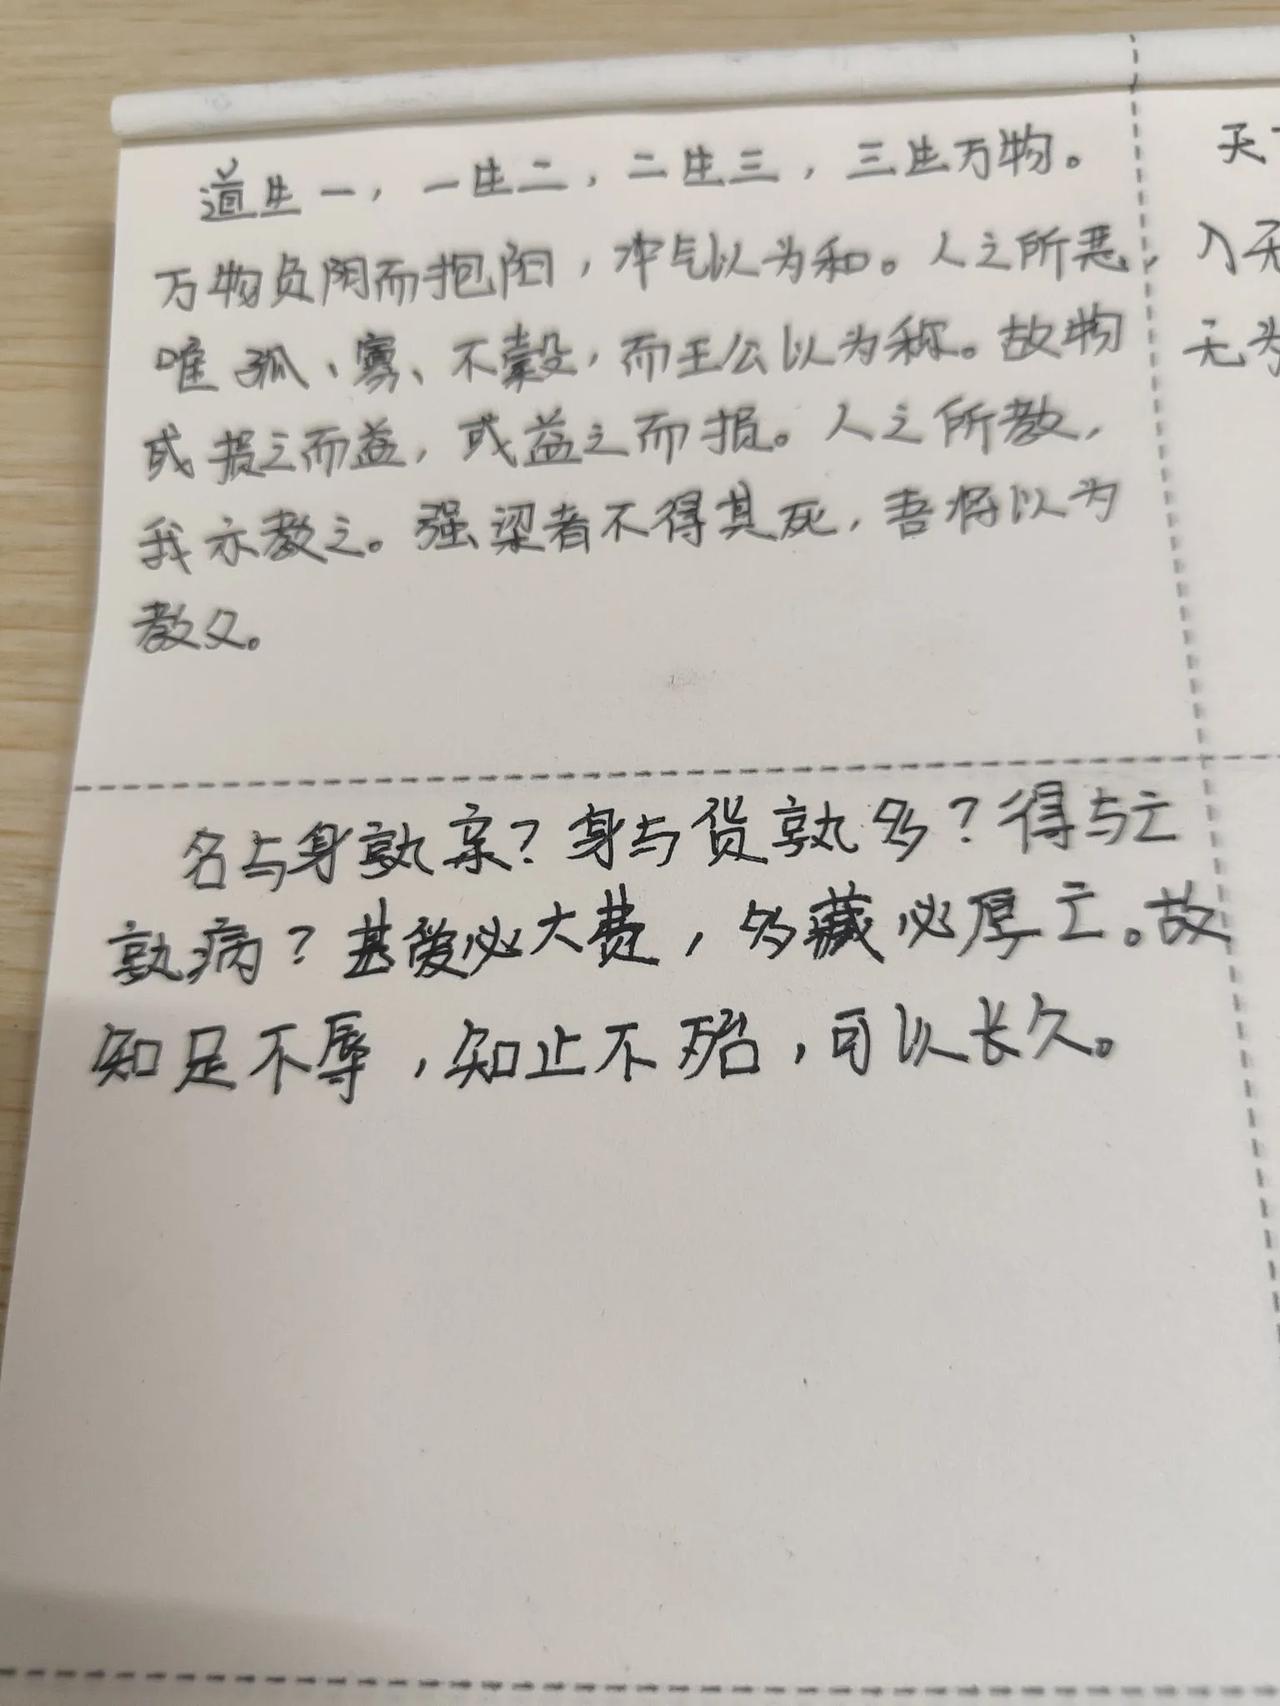 道生一，一生二，二生三，三生万物。
万物负阴而抱阳，冲气以为和。人之所恶，
唯孤、寡、不榖，而王公以为称。故物
或损之而益，或益之而损。人之所教，
我亦教之。强梁者不得其死，吾将以为
教父。
名与身孰亲？身与货孰多？得与亡
孰病？甚爱必大费，多藏必厚亡。故
知足不辱，知止不殆，可以长久。
天
入无
无为